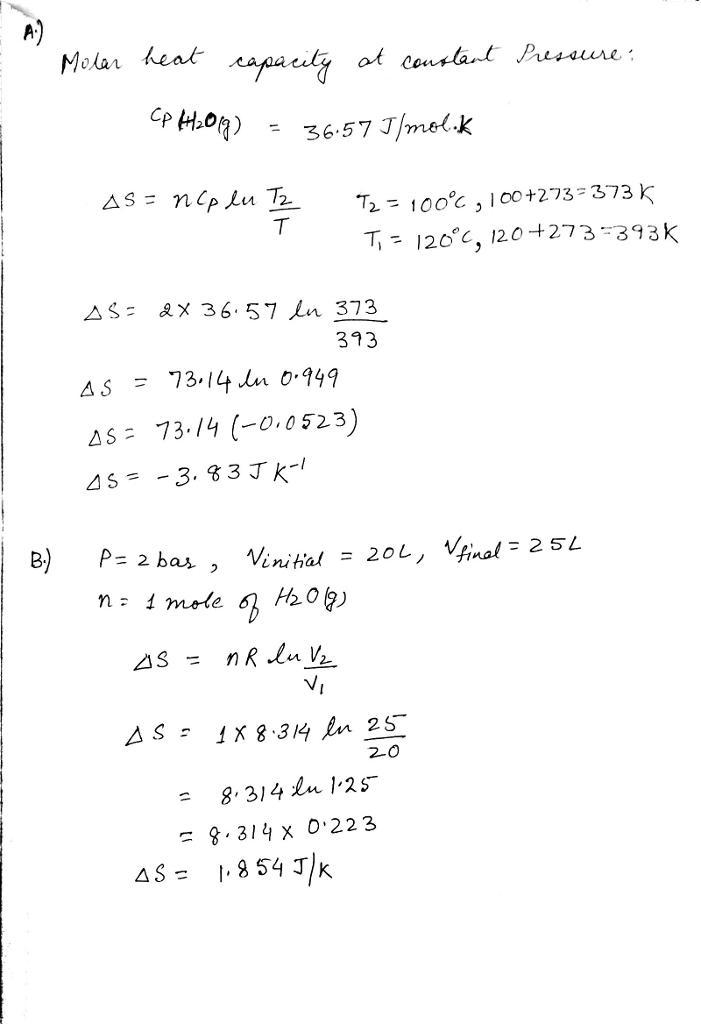 A.)
Molar heat capacity at constant Pressure:
CP (H2O(g)) = 36.57 J/mol.K
ΔS = nCp ln T2/T
T2 = 100°C, 100+273=373K
T1 = 120°C, 120+273=393K
ΔS = 2X 36.57 ln 373/393
ΔS = 73.14 ln 0.949
ΔS = 73.14 (-0.0523)
ΔS = -3.83 J K-1
B.) P= 2 bar, Vinitial = 20L, Vfinal = 25L
n = 1 mole of H2O(g)
ΔS = nR ln V2/V1
ΔS = 1 X 8.314 ln 25/20
= 8.314 ln 1.25
= 8.314 x 0.223
ΔS = 1.854 J/K